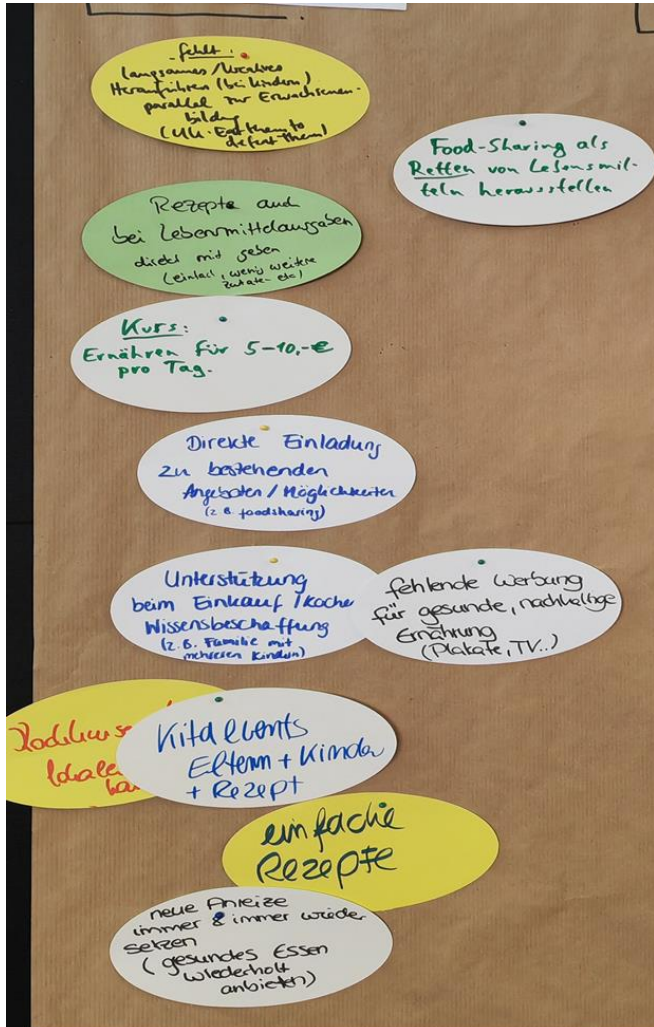 fehlt:
langsames/kreatives
Heranführen (bei Kindern)
parallel zur Erwachsenen-
bildung
(UK: Eat them to
defeat them)
Food-Sharing als
Retten von Lebensmit-
teln herausstellen
Rezepte auch
bei Lebenmittelausgaben
direkt mit geben
(einfach, wenig weitere
Zutaten etc)
Kurs:
Ernähren für 5-10,-€
pro Tag.
Direkte Einladung
zu bestehenden
Angeboten / Möglichkeiten
(z.B. foodsharing)
Unterstützung
beim Einkauf / Koche
Wissensbeschaffung
(z.B. Familie mit
mehreren Kindern)
fehlende Werbung
für gesunde, nachhaltige
Ernährung
(Plakate, TV..)
lokale
Kita events
Eltern + Kinder
+ Rezept
einfache
Rezepte
neue Anreize
immer & immer wieder
setzen
(gesundes Essen
wiederholt
anbieten)